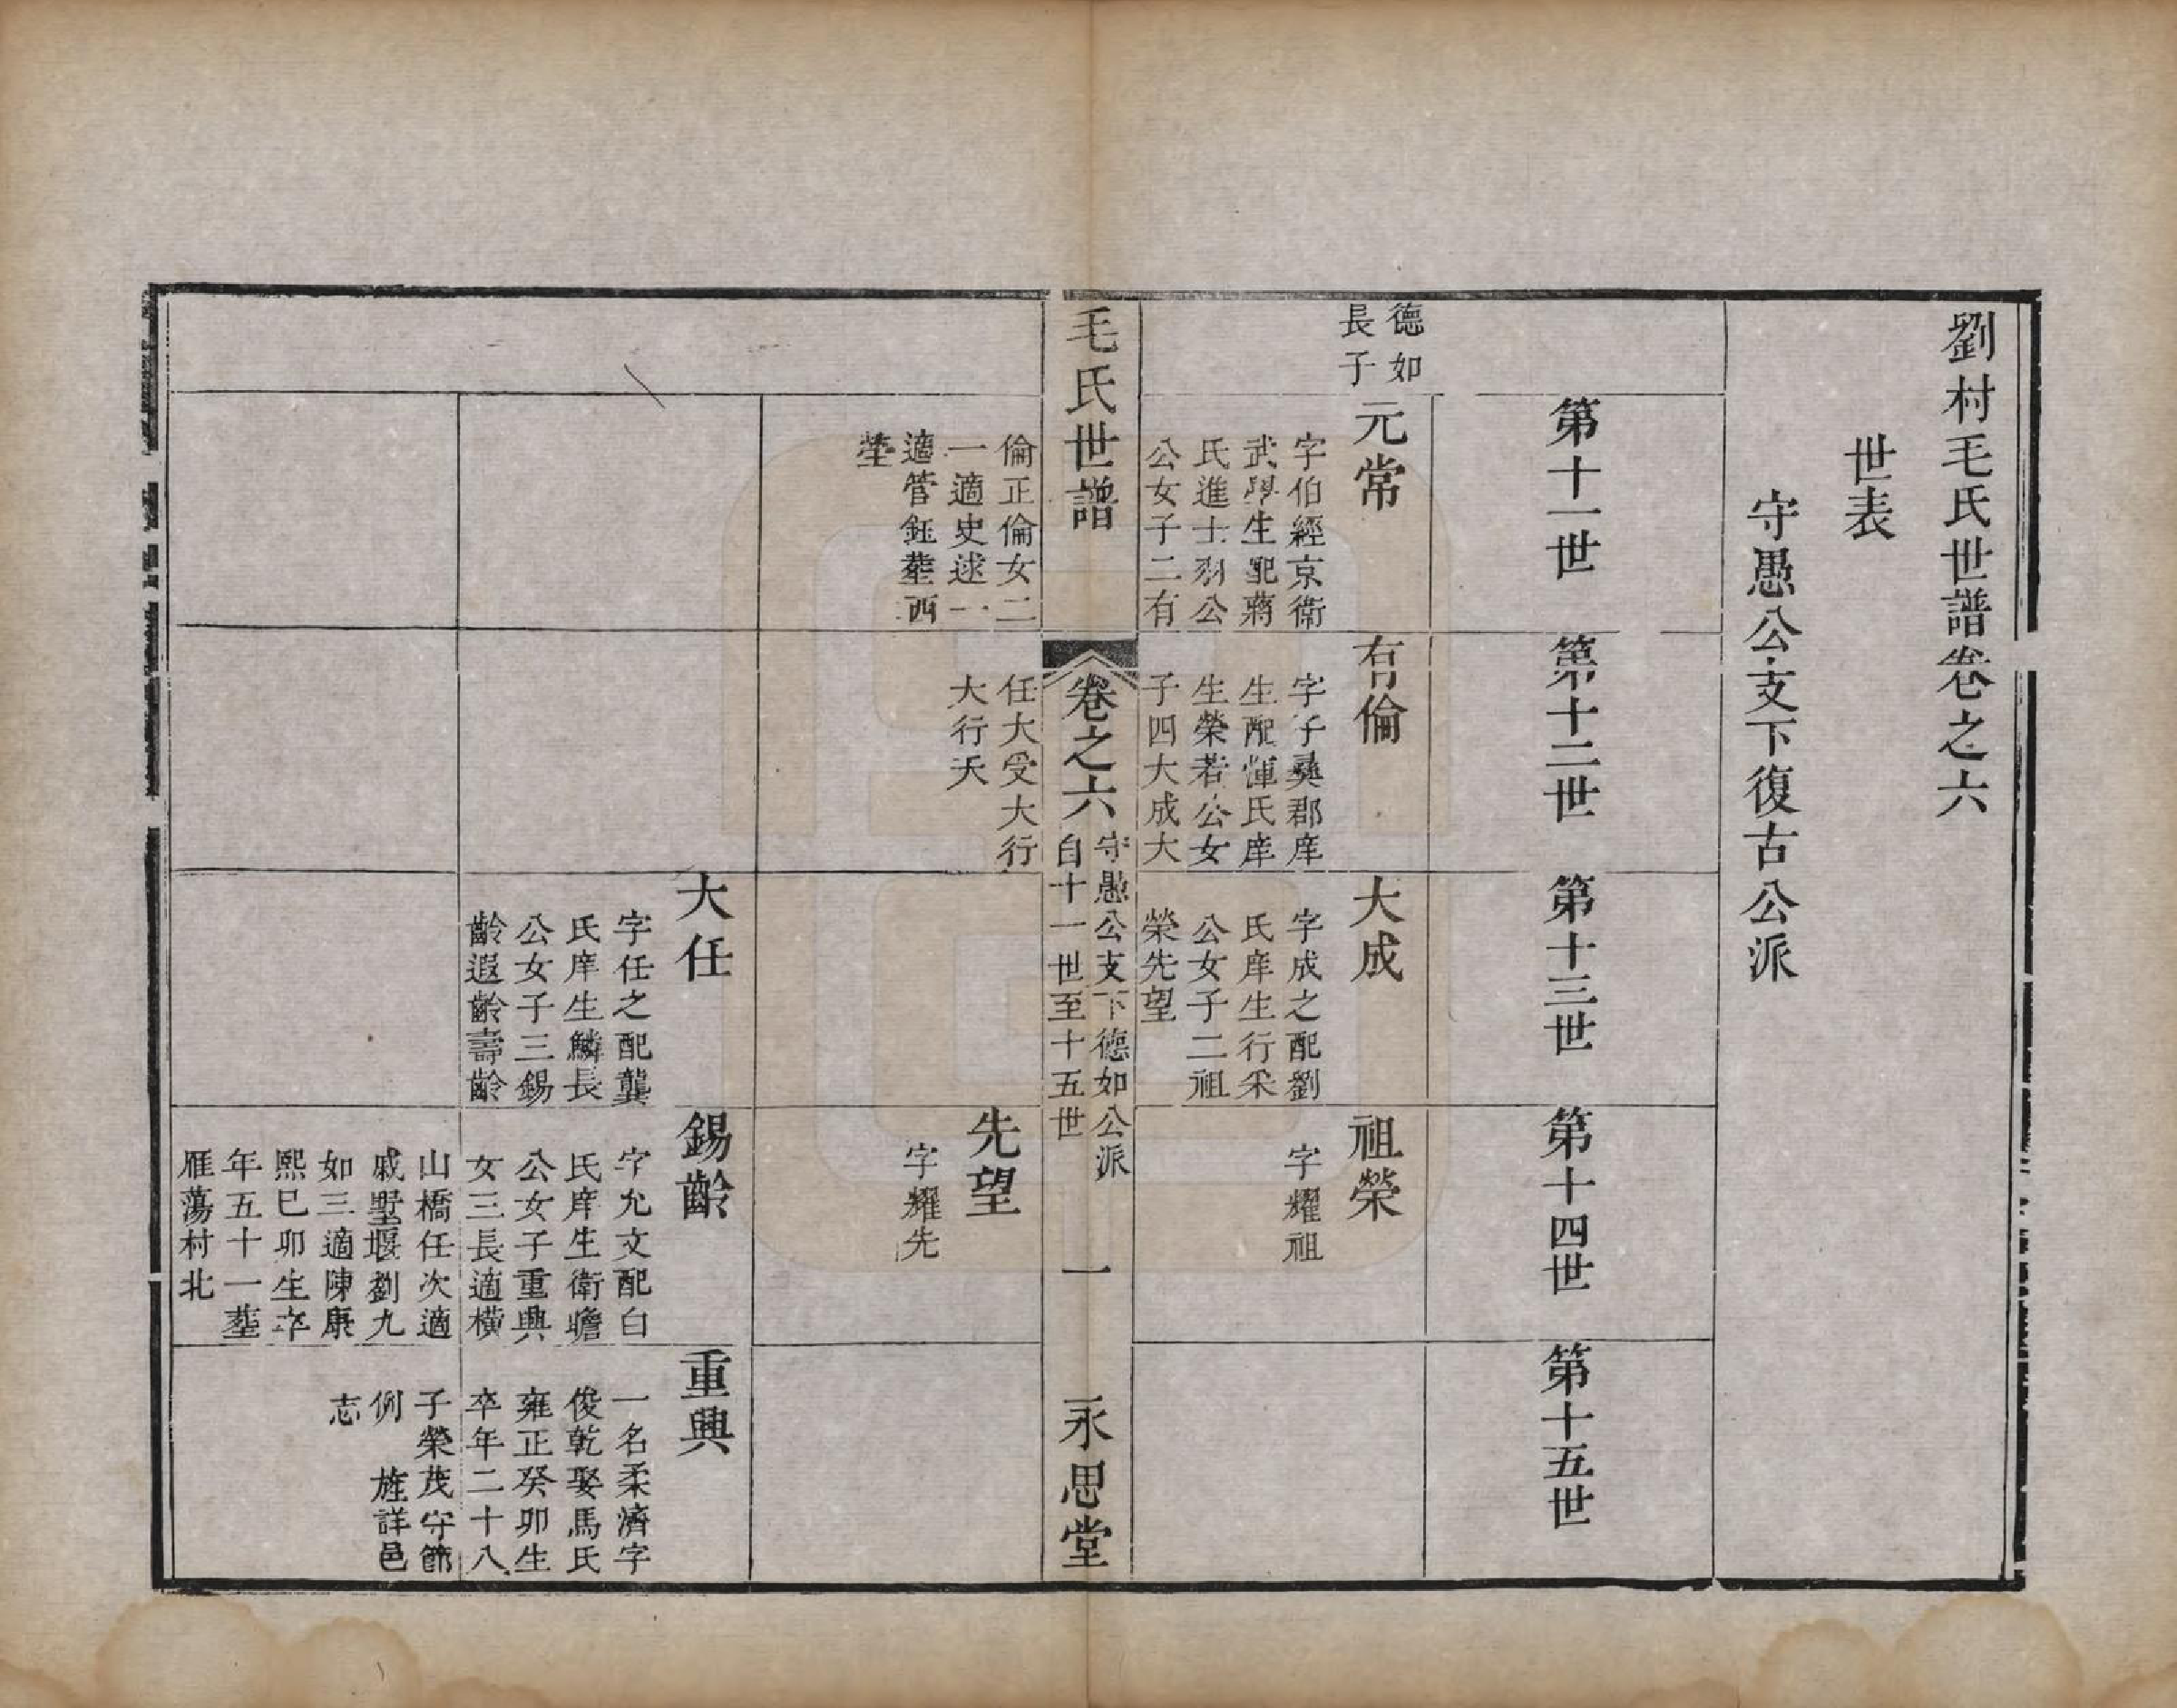 劉村毛氏世譜卷之六
世表
守愚公支下復古公派
第十一世
第十二世
第十三世
第十四世
第十五世
德如
長子
元常
字伯經京衛
武學生配蔣
氏進士羽公
公女子二有
倫正倫女二
一適史逑一
適管鈺塟西
塋
有倫
字子彞郡庠
生配惲氏庠
生榮若公女
子四大成大
任大受大行
大行夭
大成
字成之配劉
氏庠生行采
公女子二祖
榮先望
祖榮
字耀祖
毛氏世譜
卷之六
守愚公支下德如公派
自十一世至十五世
一
永思堂
先望
字耀先
大任
字任之配龔
氏庠生鱗長
公女子三錫
齡遐齡壽齡
錫齡
字允文配白
氏庠生衛瞻
公女子重興
女三長適橫
山橋任次適
戚墅堰劉九
如三適陳康
熙巳卯生卒
年五十一塟
雁蕩村北
重興
一名柔濟字
俊乾娶馬氏
雍正癸卯生
卒年二十八
子榮茂守節
例 旌詳邑
志